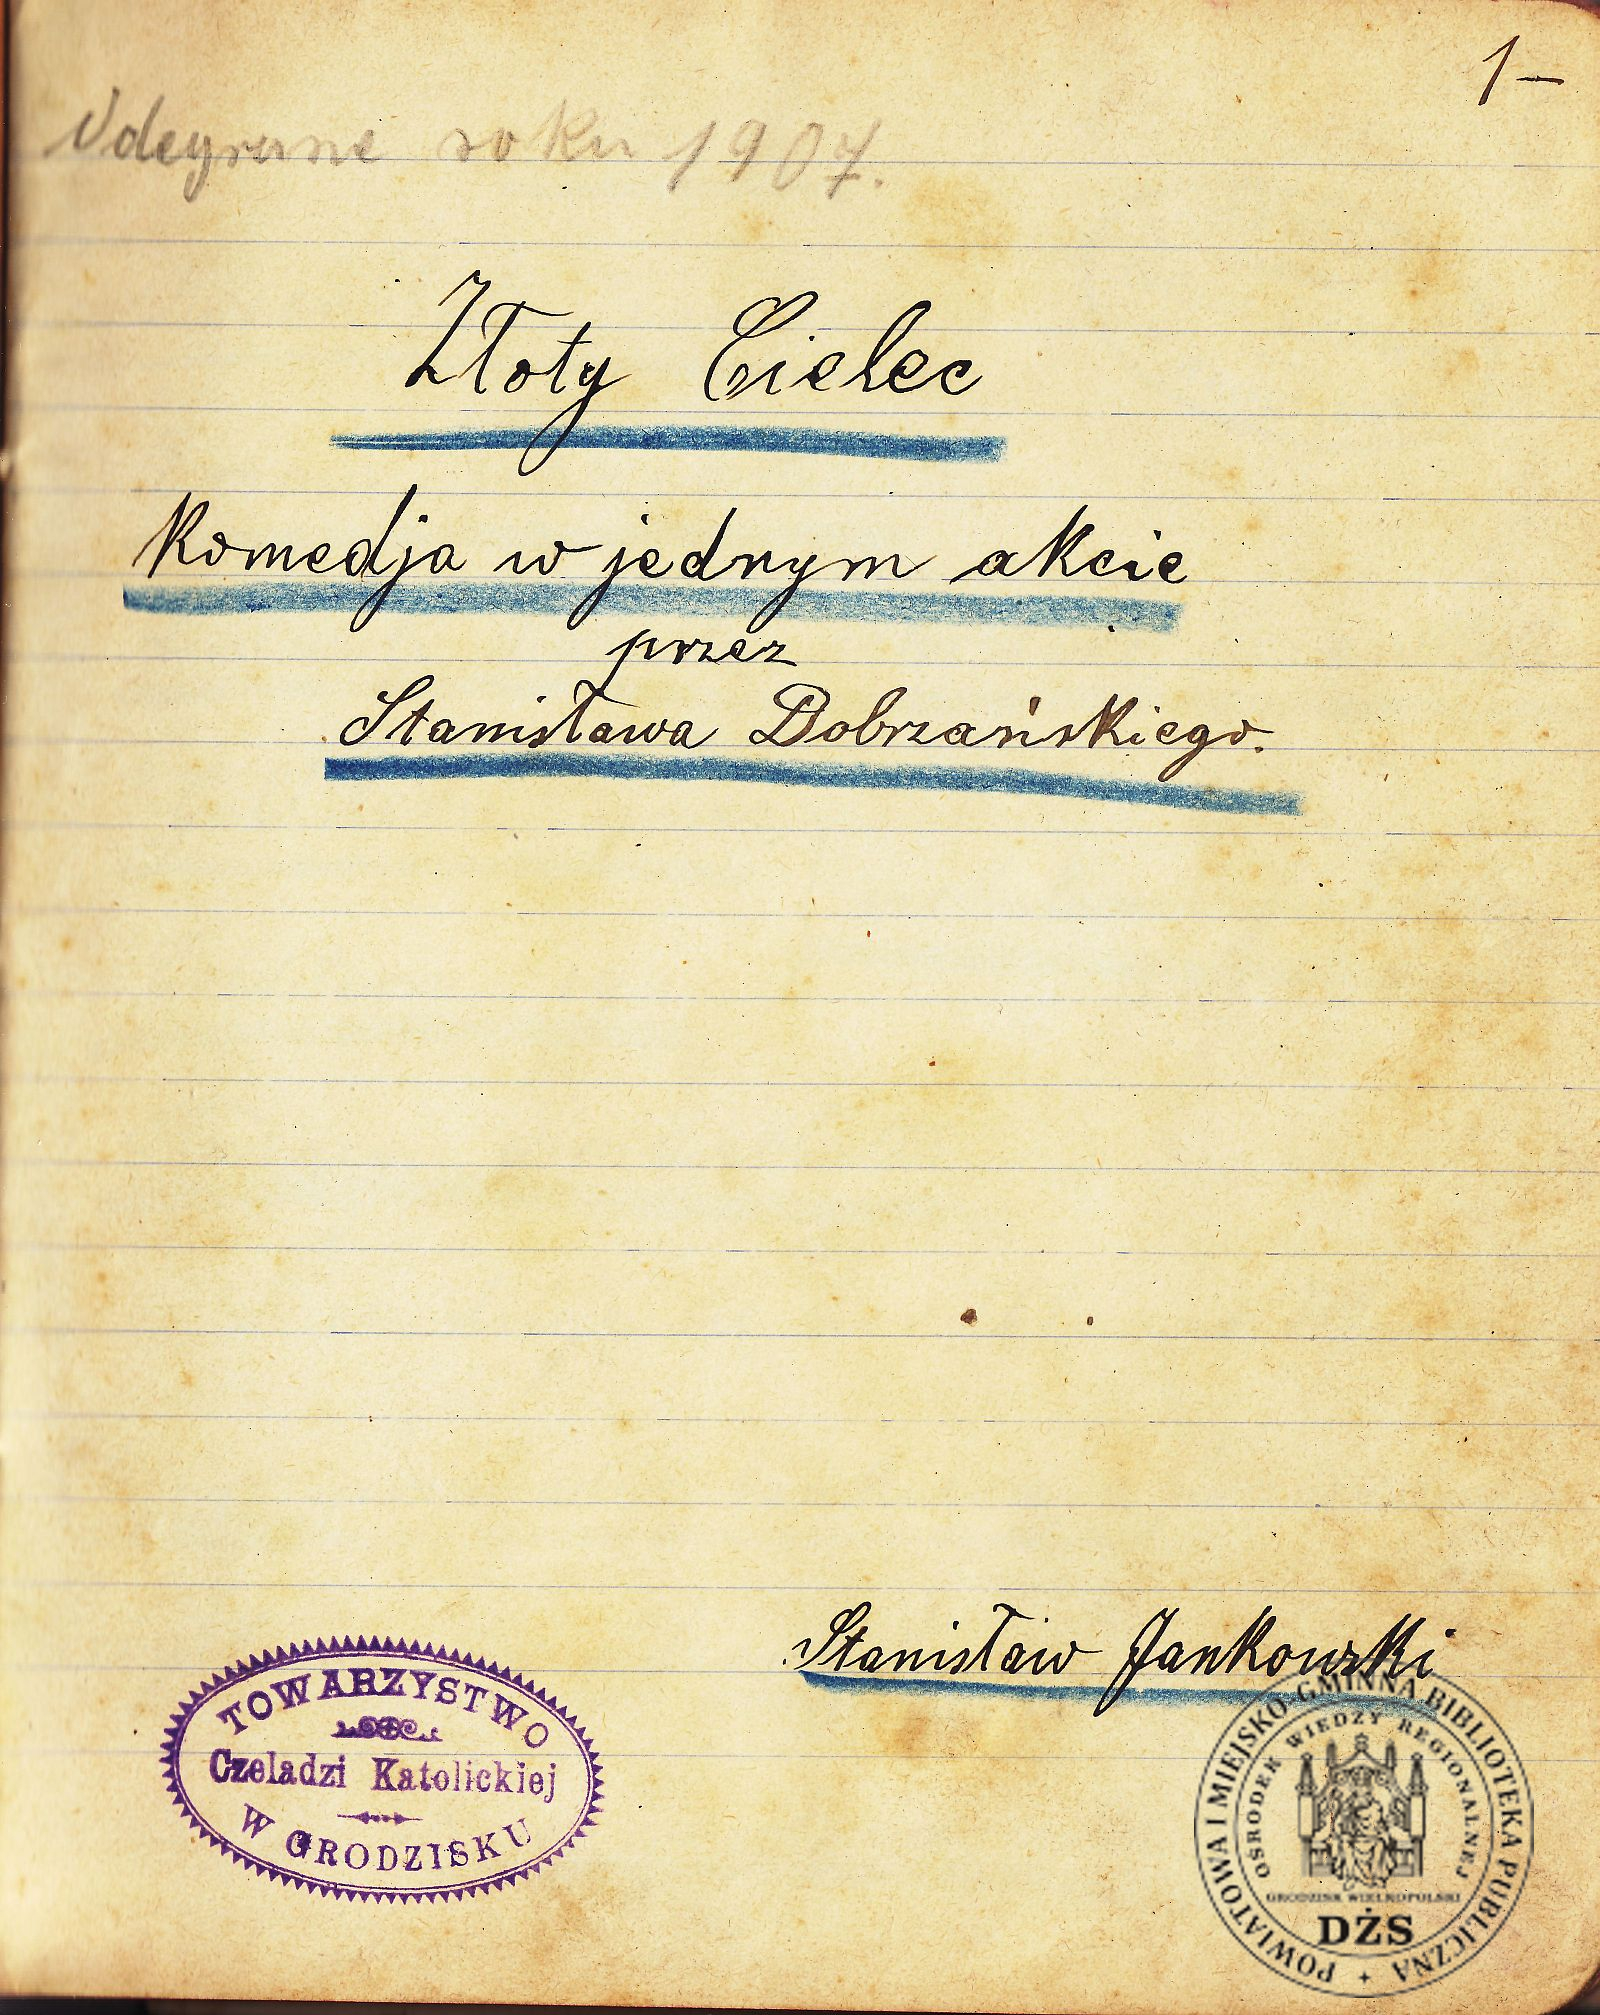 1 –
Odegrane roku 1907.
Złoty Cielec
Komedja w jednym akcie
przez
Stanisława Dobrzańskiego.
Stanisław Jankowski
TOWARZYSTWO
Czeladzi Katolickiej
W GRODZISKU
POWIATOWA I MIEJSKO-GMINNA BIBLIOTEKA PUBLICZNA
OŚRODEK WIEDZY REGIONALNEJ
GRODZISK WIELKOPOLSKI
DŻS